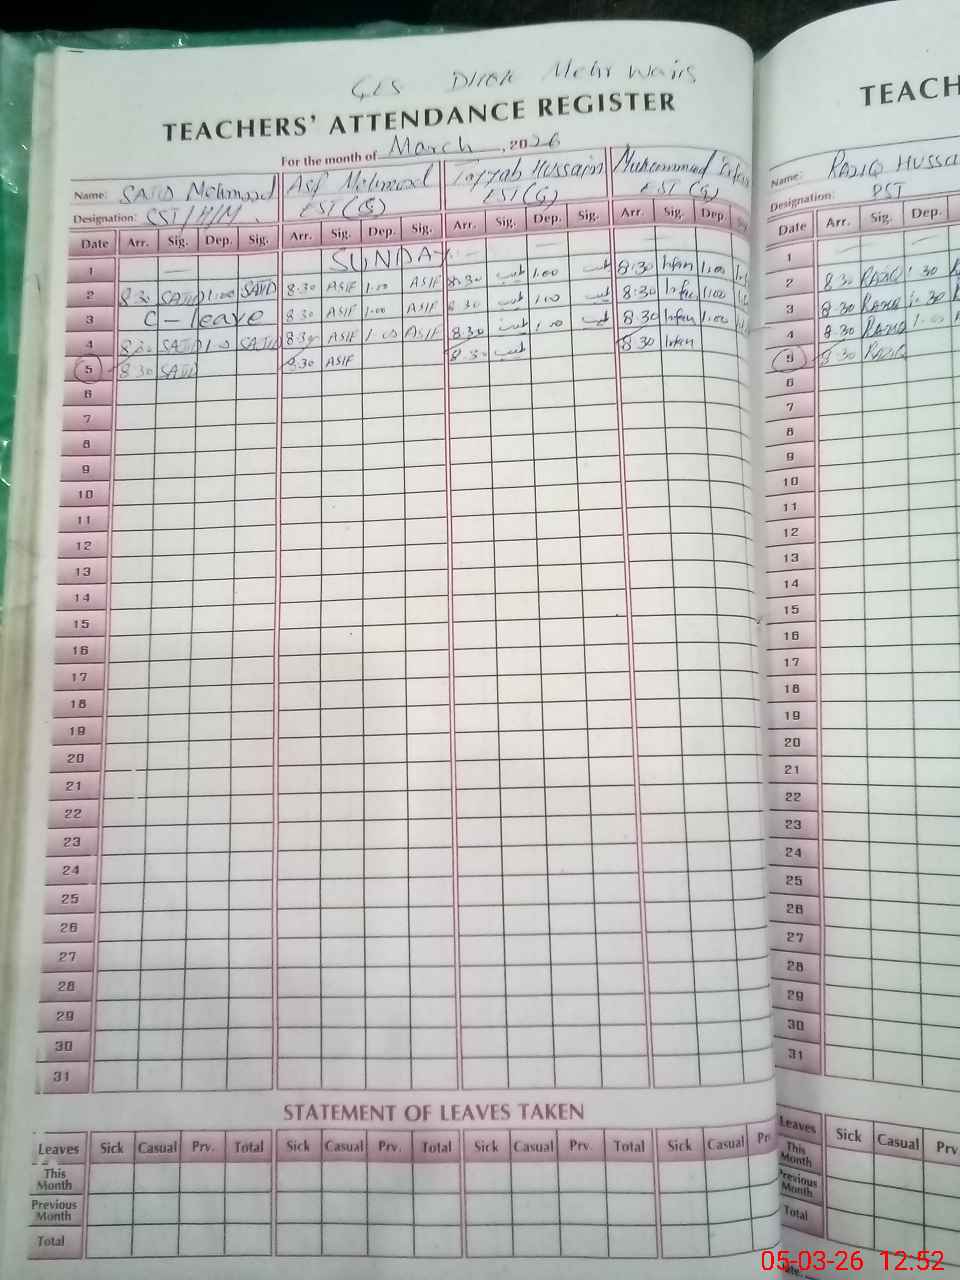 GES Dhok Mehr Wais
TEACHERS' ATTENDANCE REGISTER
For the month of March, 2026
Name: SAJID Mehmood Asif Mehmood Tayyab Hussain Muhammad Irfan
Designation: SST/H/M. EST (G) EST (G) EST (G)
Date Arr. Sig. Dep. Sig. Arr. Sig. Dep. Sig. Arr. Sig. Dep. Sig. Arr. Sig. Dep.
1 — SUNDAY — —
2 8:30 SAJID 1:00 SAJID 8:30 ASIF 1:00 ASIF 8:30 طیب 1:00 طیب 8:30 Irfan 1:00
3 C - leave 8:30 ASIF 1:00 ASIF 8:30 طیب 1:00 طیب 8:30 Irfan 1:00
4 8:30 SAJID 1:00 SAJID 8:30 ASIF 1:00 ASIF 8:30 طیب 1:00 طیب 8:30 Irfan 1:00
5 8:30 SAJID 8:30 ASIF 8:30 طیب 8:30 Irfan
6
7
8
9
10
11
12
13
14
15
16
17
18
19
20
21
22
23
24
25
26
27
28
29
30
31
STATEMENT OF LEAVES TAKEN
Leaves Sick Casual Prv. Total Sick Casual Prv. Total Sick Casual Prv. Total Sick Casual
This Month
Previous Month
Total
TEACH
Name: RAZIQ HUSSA
Designation: PST
Date Arr. Sig. Dep.
1
2 8:30 RAZIQ 1:30
3 8:30 RAZIQ 1:30
4 8:30 RAZIQ 1:00
5 8:30 RAZIQ
6
7
8
9
10
11
12
13
14
15
16
17
18
19
20
21
22
23
24
25
26
27
28
29
30
31
Leaves Sick Casual Prv
This Month
Previous Month
Total
05-03-26 12.52